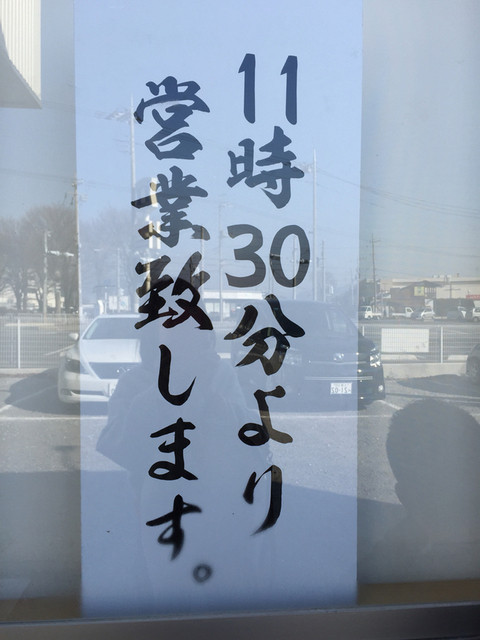 11時30分より
営業致します。